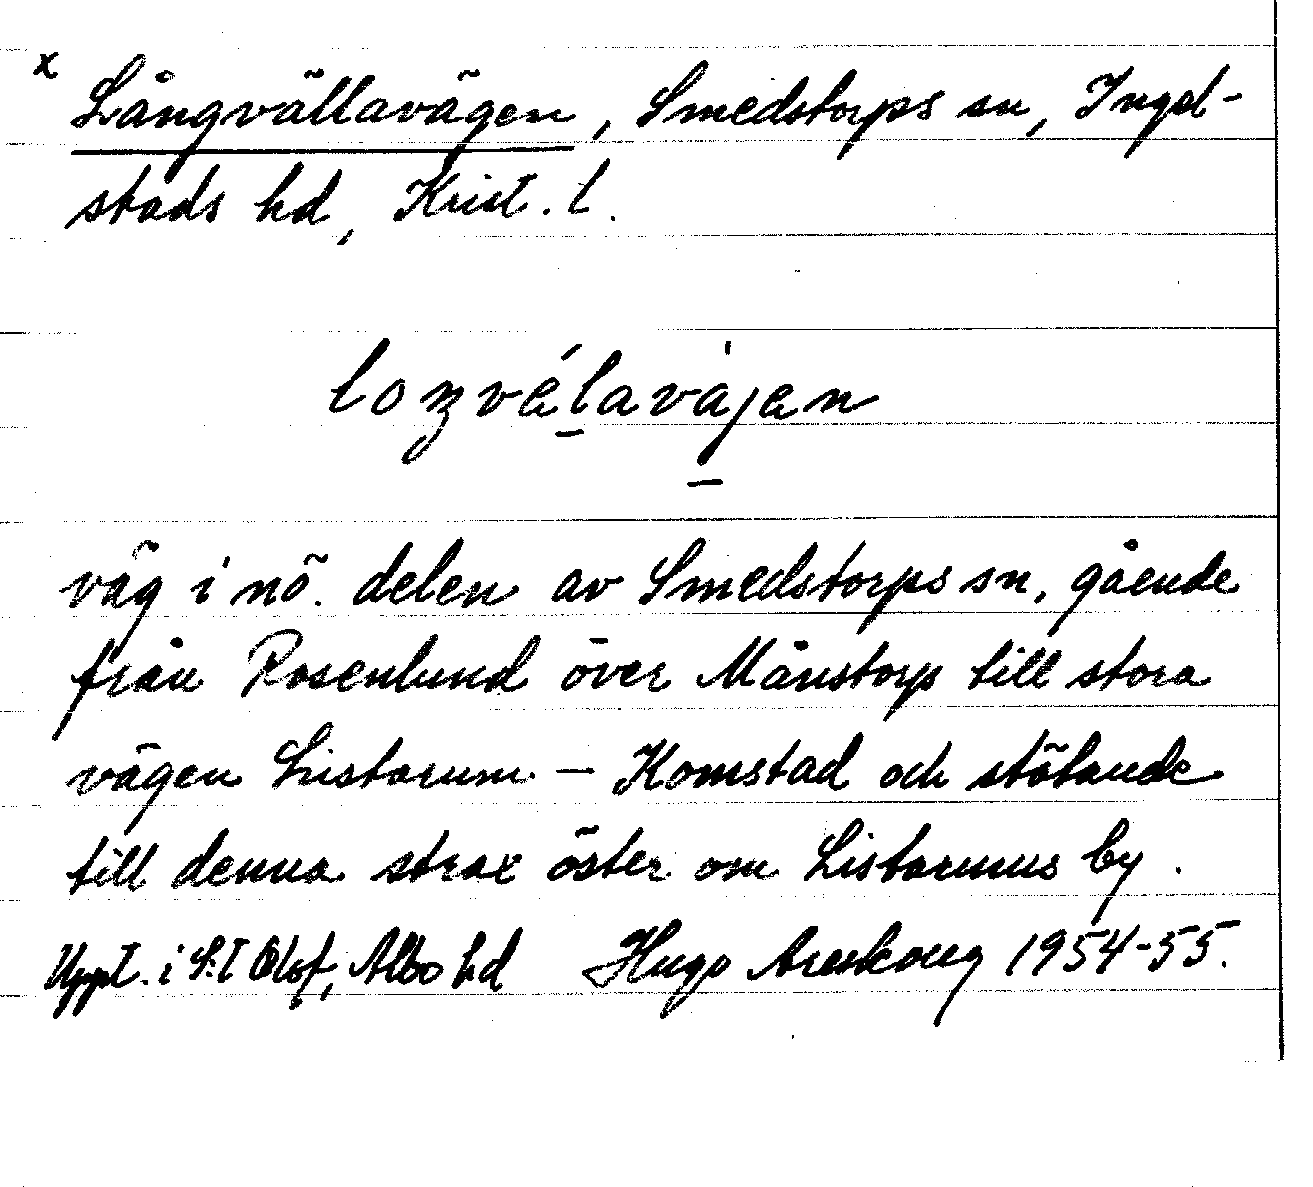 x Långvällavägen, Smedstorps sn, Ingel-
stads hd, Krist. l.
väg i nö. delen av Smedstorps sn, gående
från Rosenlund över Månstorp till stora
vägen Listarum – Komstad och stötande
till denna strax öster om Listarums by.
Uppt. i S:t Olof, Albo hd Hugo Areskoug 1954-55.